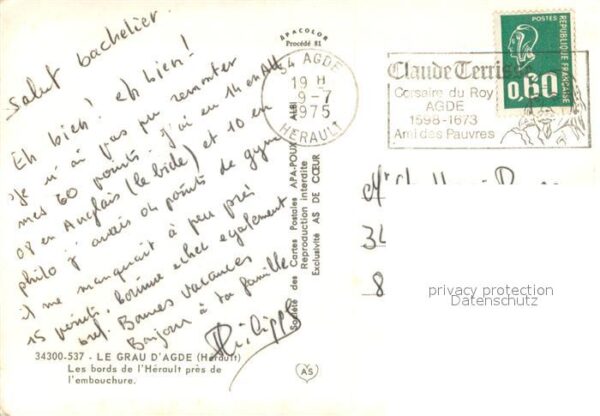 Salut bachelier.
Eh bien! eh bien!
Je n'ai pas pu remonter
mes 60 points. j'ai eu 14 en All
08 en Anglais (le bide) et 10 en
philo j'avais 04 points de gym
il me manquait à peu près
15 points, comme echec également
bref. Bonnes Vacances
Bonjour à ta famille
Philippe
34300-537 - LE GRAU D'AGDE (Hérault)
Les bords de l'Hérault près de
l'embouchure.
APACOLOR
Procédé 81
Société des Cartes Postales APA-POUX - ALBI
Reproduction interdite
Exclusivité AS DE CŒUR
AS
34 AGDE
19 H
9-7
1975
HERAULT
Claude Terrisse
Corsaire du Roy
AGDE
1598-1673
Ami des Pauvres
POSTES
REPUBLIQUE FRANÇAISE
0,60
Mr
34
8
privacy protection
Datenschutz